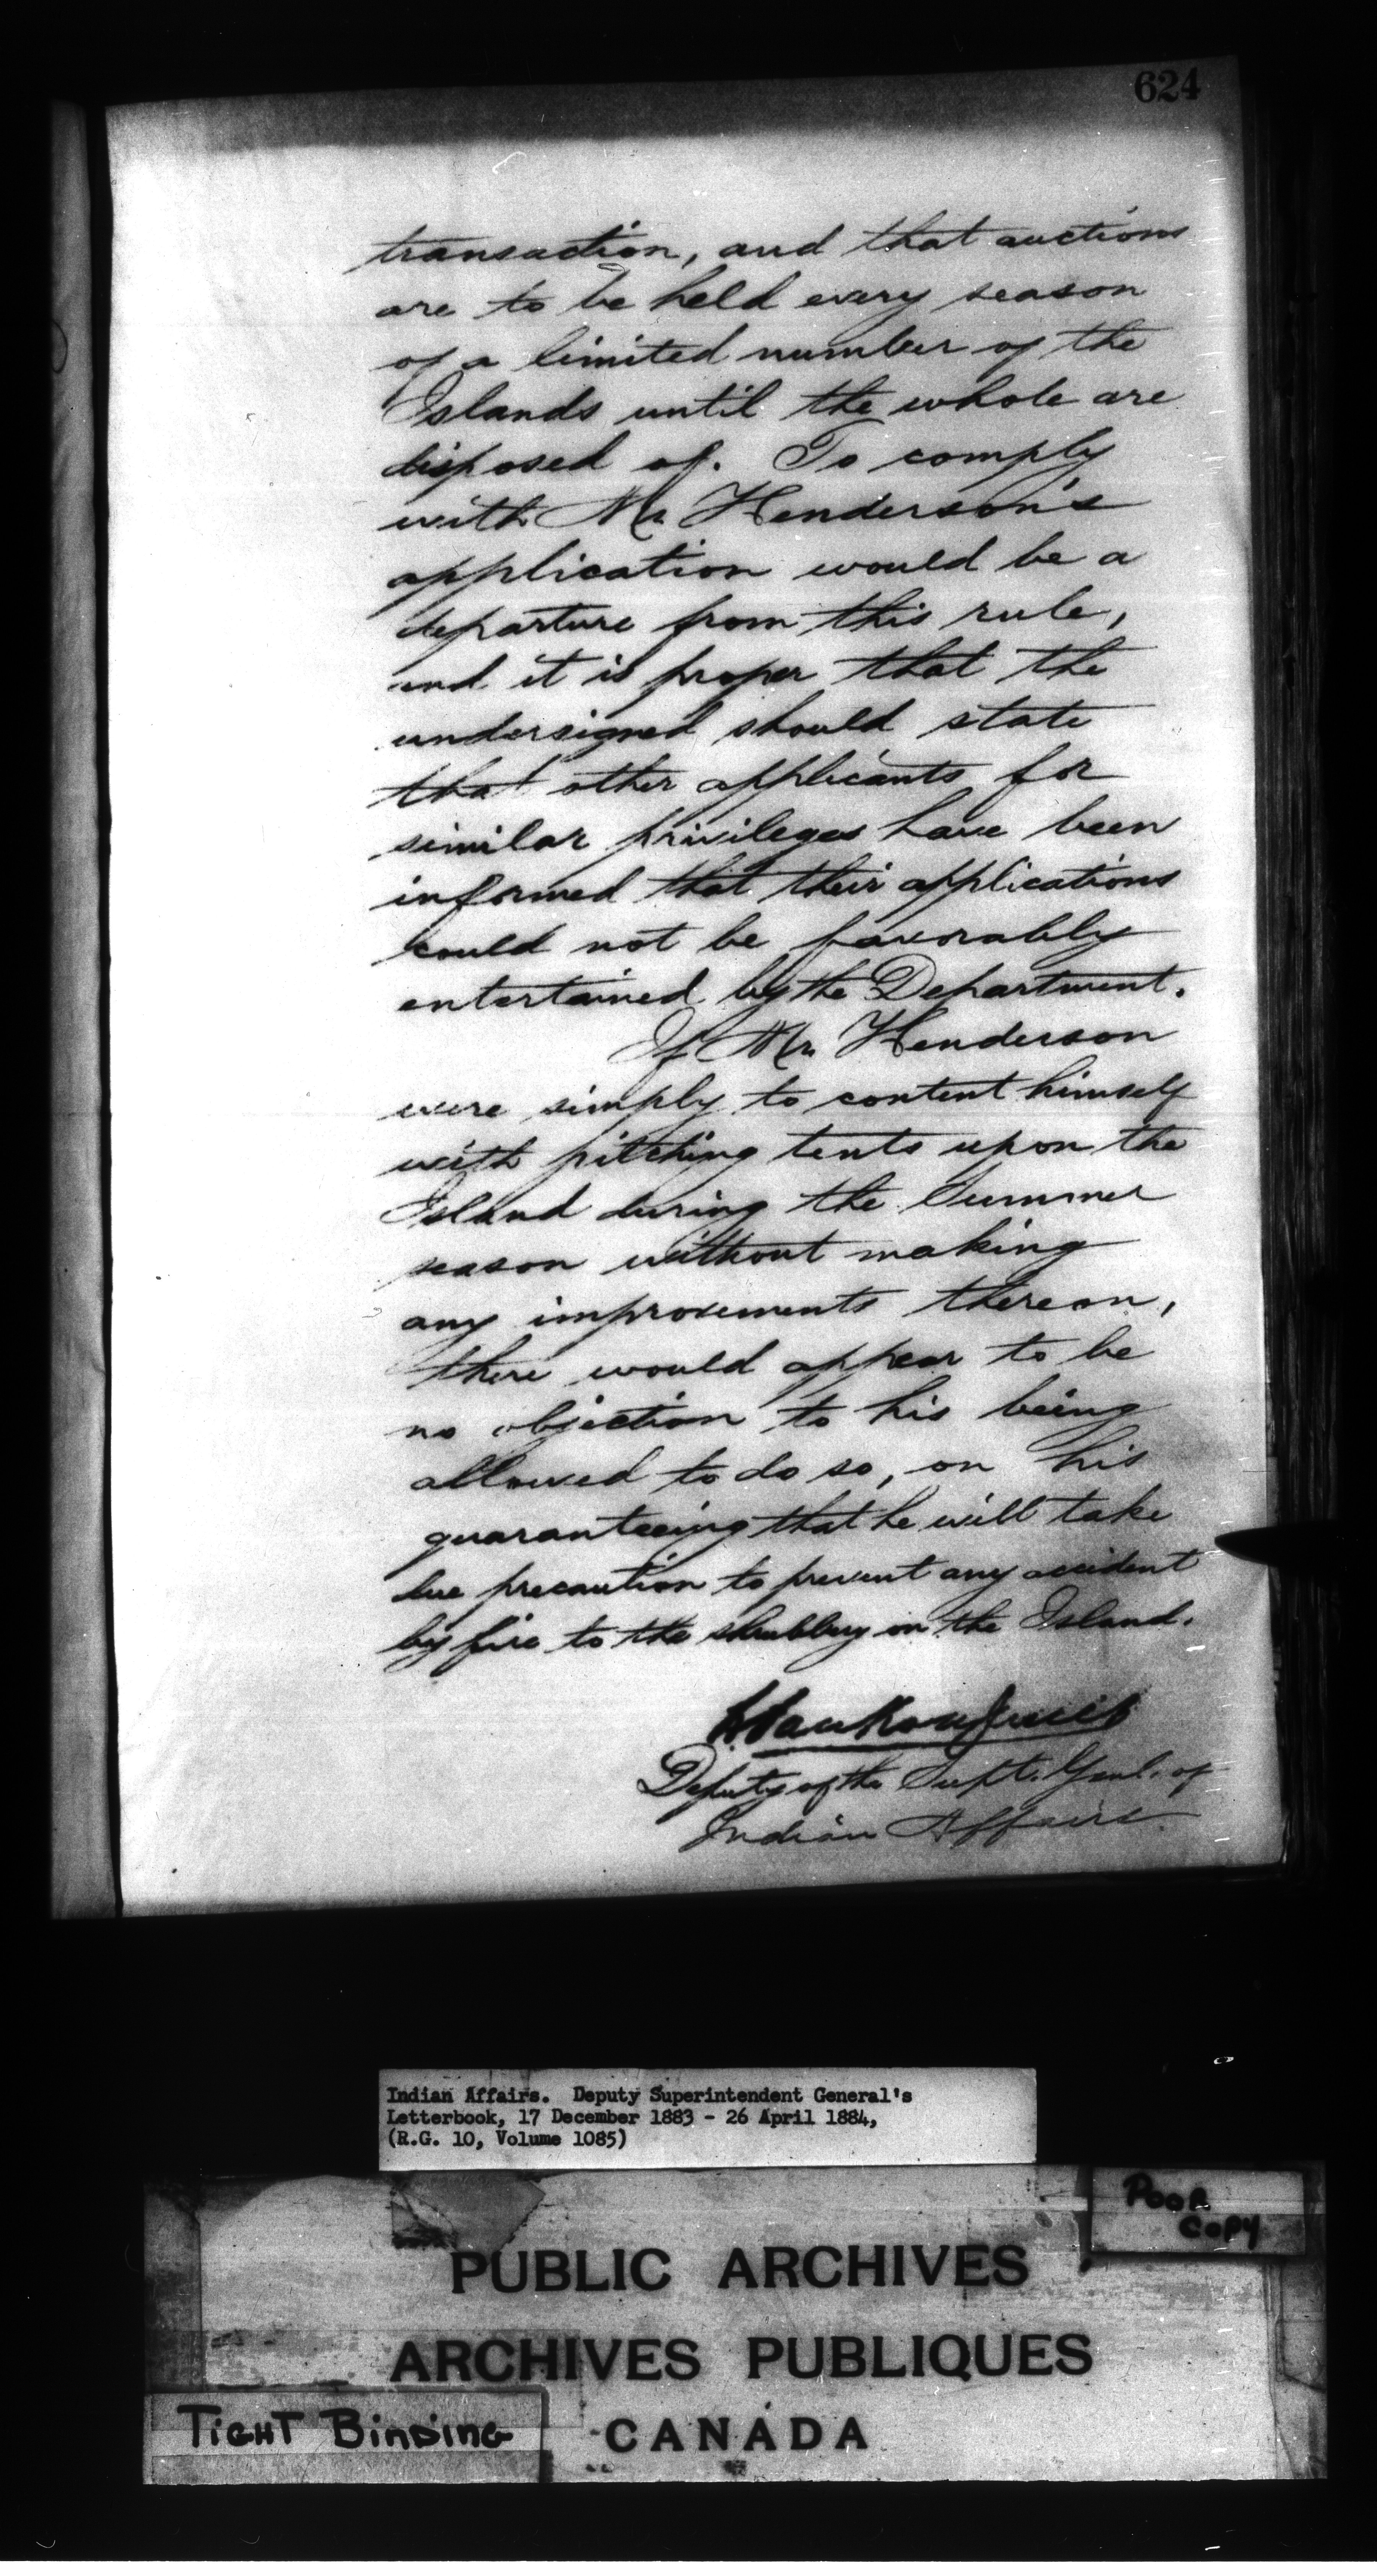 624
transaction, and that auctions
are to be held every season
of a limited number of the
Islands until the whole are
disposed of. To comply
with Mr Henderson's
application would be a
departure from this rule,
and it is proper that the
undersigned should state
that other applicants for
similar privileges have been
informed that their applications
could not be favorably
entertained by the Department.
If Mr. Henderson
were simply to content himself
with pitching tents upon the
Island during the Summer
season without making
any improvements thereon,
there would appear to be
no objection to his being
allowed to do so, on his
guaranteeing that he will take
due precaution to prevent any accident
by fire to the shrubbery on the Island.
L. Vankoughnet
Deputy of the Supt. Genl. of
Indian Affairs.
Indian Affairs. Deputy Superintendent General's
Letterbook, 17 December 1883 - 26 April 1884,
(R.G. 10, Volume 1085)
Poor
Copy
PUBLIC ARCHIVES
ARCHIVES PUBLIQUES
CANADA
Tight Binding